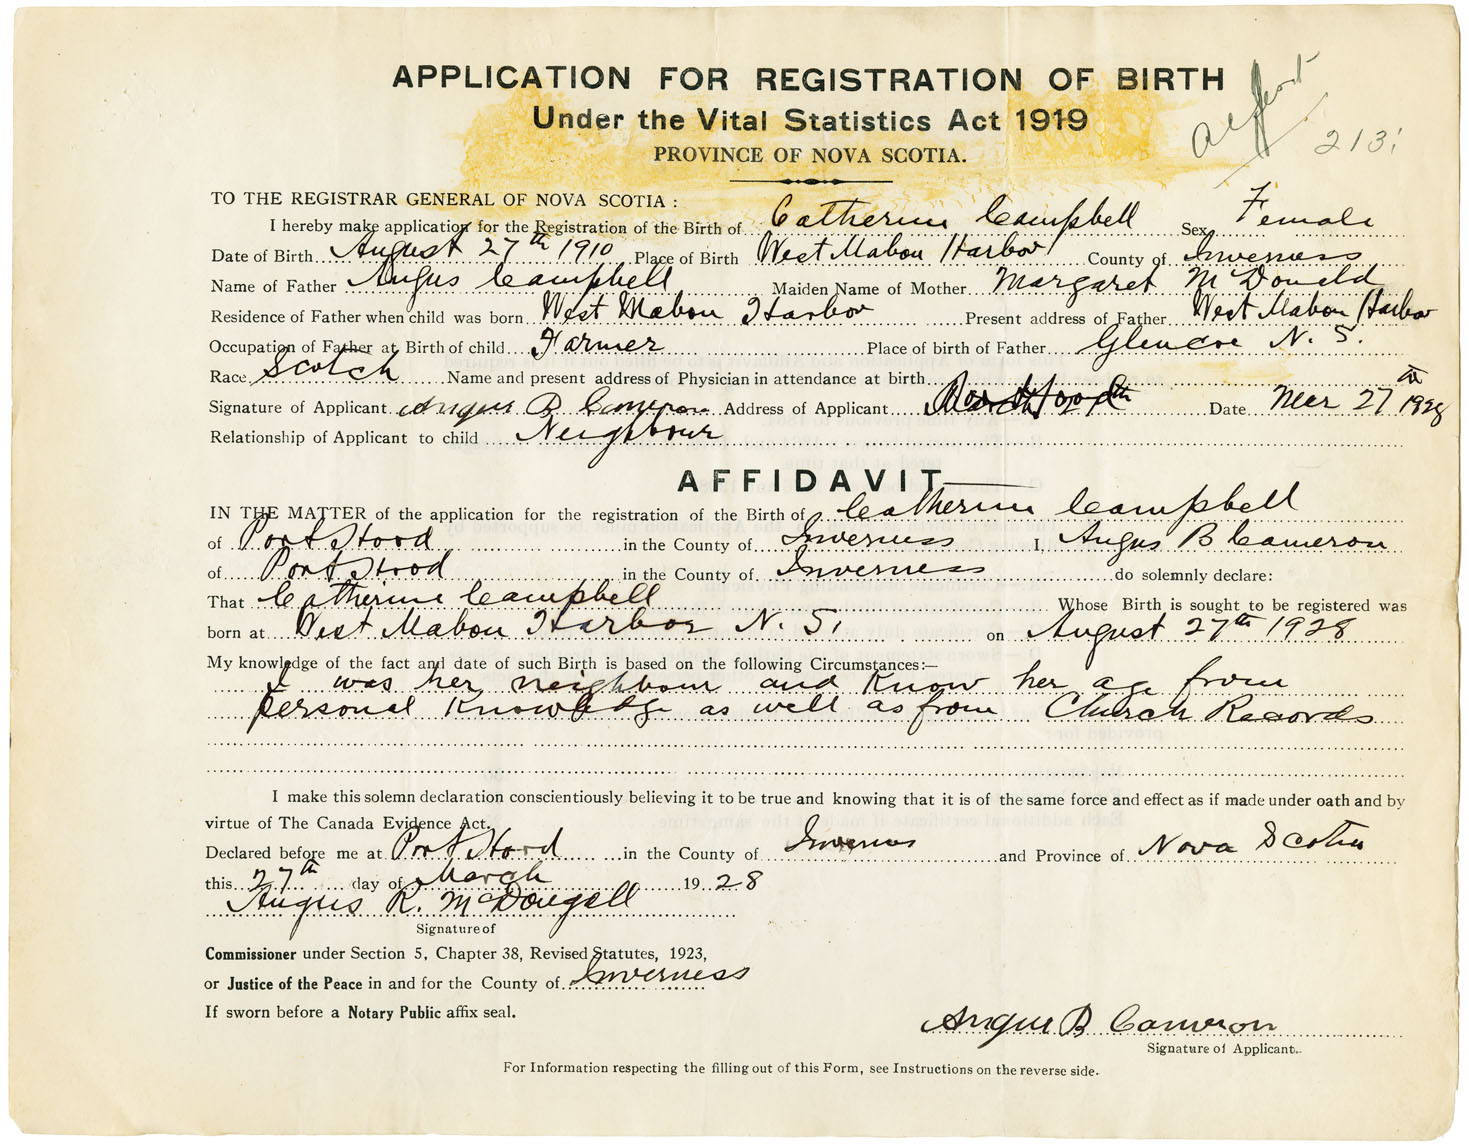 APPLICATION FOR REGISTRATION OF BIRTH
Under the Vital Statistics Act 1919
PROVINCE OF NOVA SCOTIA.
213
TO THE REGISTRAR GENERAL OF NOVA SCOTIA :
I hereby make application for the Registration of the Birth of Catherine Campbell Sex Female
Date of Birth August 27th 1910 Place of Birth West Mabou Harbor County of Inverness
Name of Father Angus Campbell Maiden Name of Mother Margaret McDonald
Residence of Father when child was born West Mabou Harbor Present address of Father West Mabou Harbor
Occupation of Father at Birth of child Farmer Place of birth of Father Glencoe N. S.
Race Scotch Name and present address of Physician in attendance at birth
Signature of Applicant Angus B Cameron Address of Applicant Date Mar 27th 1928
Relationship of Applicant to child Neighbour
AFFIDAVIT
IN THE MATTER of the application for the registration of the Birth of Catherine Campbell
of Port Hood in the County of Inverness I, Angus B Cameron
of Port Hood in the County of Inverness do solemnly declare:
That Catherine Campbell Whose Birth is sought to be registered was
born at West Mabou Harbor N. S. on August 27th 1928
My knowledge of the fact and date of such Birth is based on the following Circumstances:—
I was her neighbour and know her age from
personal knowledge as well as from Church Records
I make this solemn declaration conscientiously believing it to be true and knowing that it is of the same force and effect as if made under oath and by
virtue of The Canada Evidence Act.
Declared before me at Port Hood in the County of Inverness and Province of Nova Scotia
this 27th day of March 1928
Angus R. McDougall
Signature of
Commissioner under Section 5, Chapter 38, Revised Statutes, 1923,
or Justice of the Peace in and for the County of Inverness
If sworn before a Notary Public affix seal.
Angus B Cameron
Signature of Applicant.
For Information respecting the filling out of this Form, see Instructions on the reverse side.